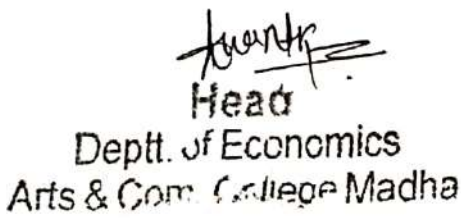 Head
Deptt. of Economics
Arts & Com. College Madha